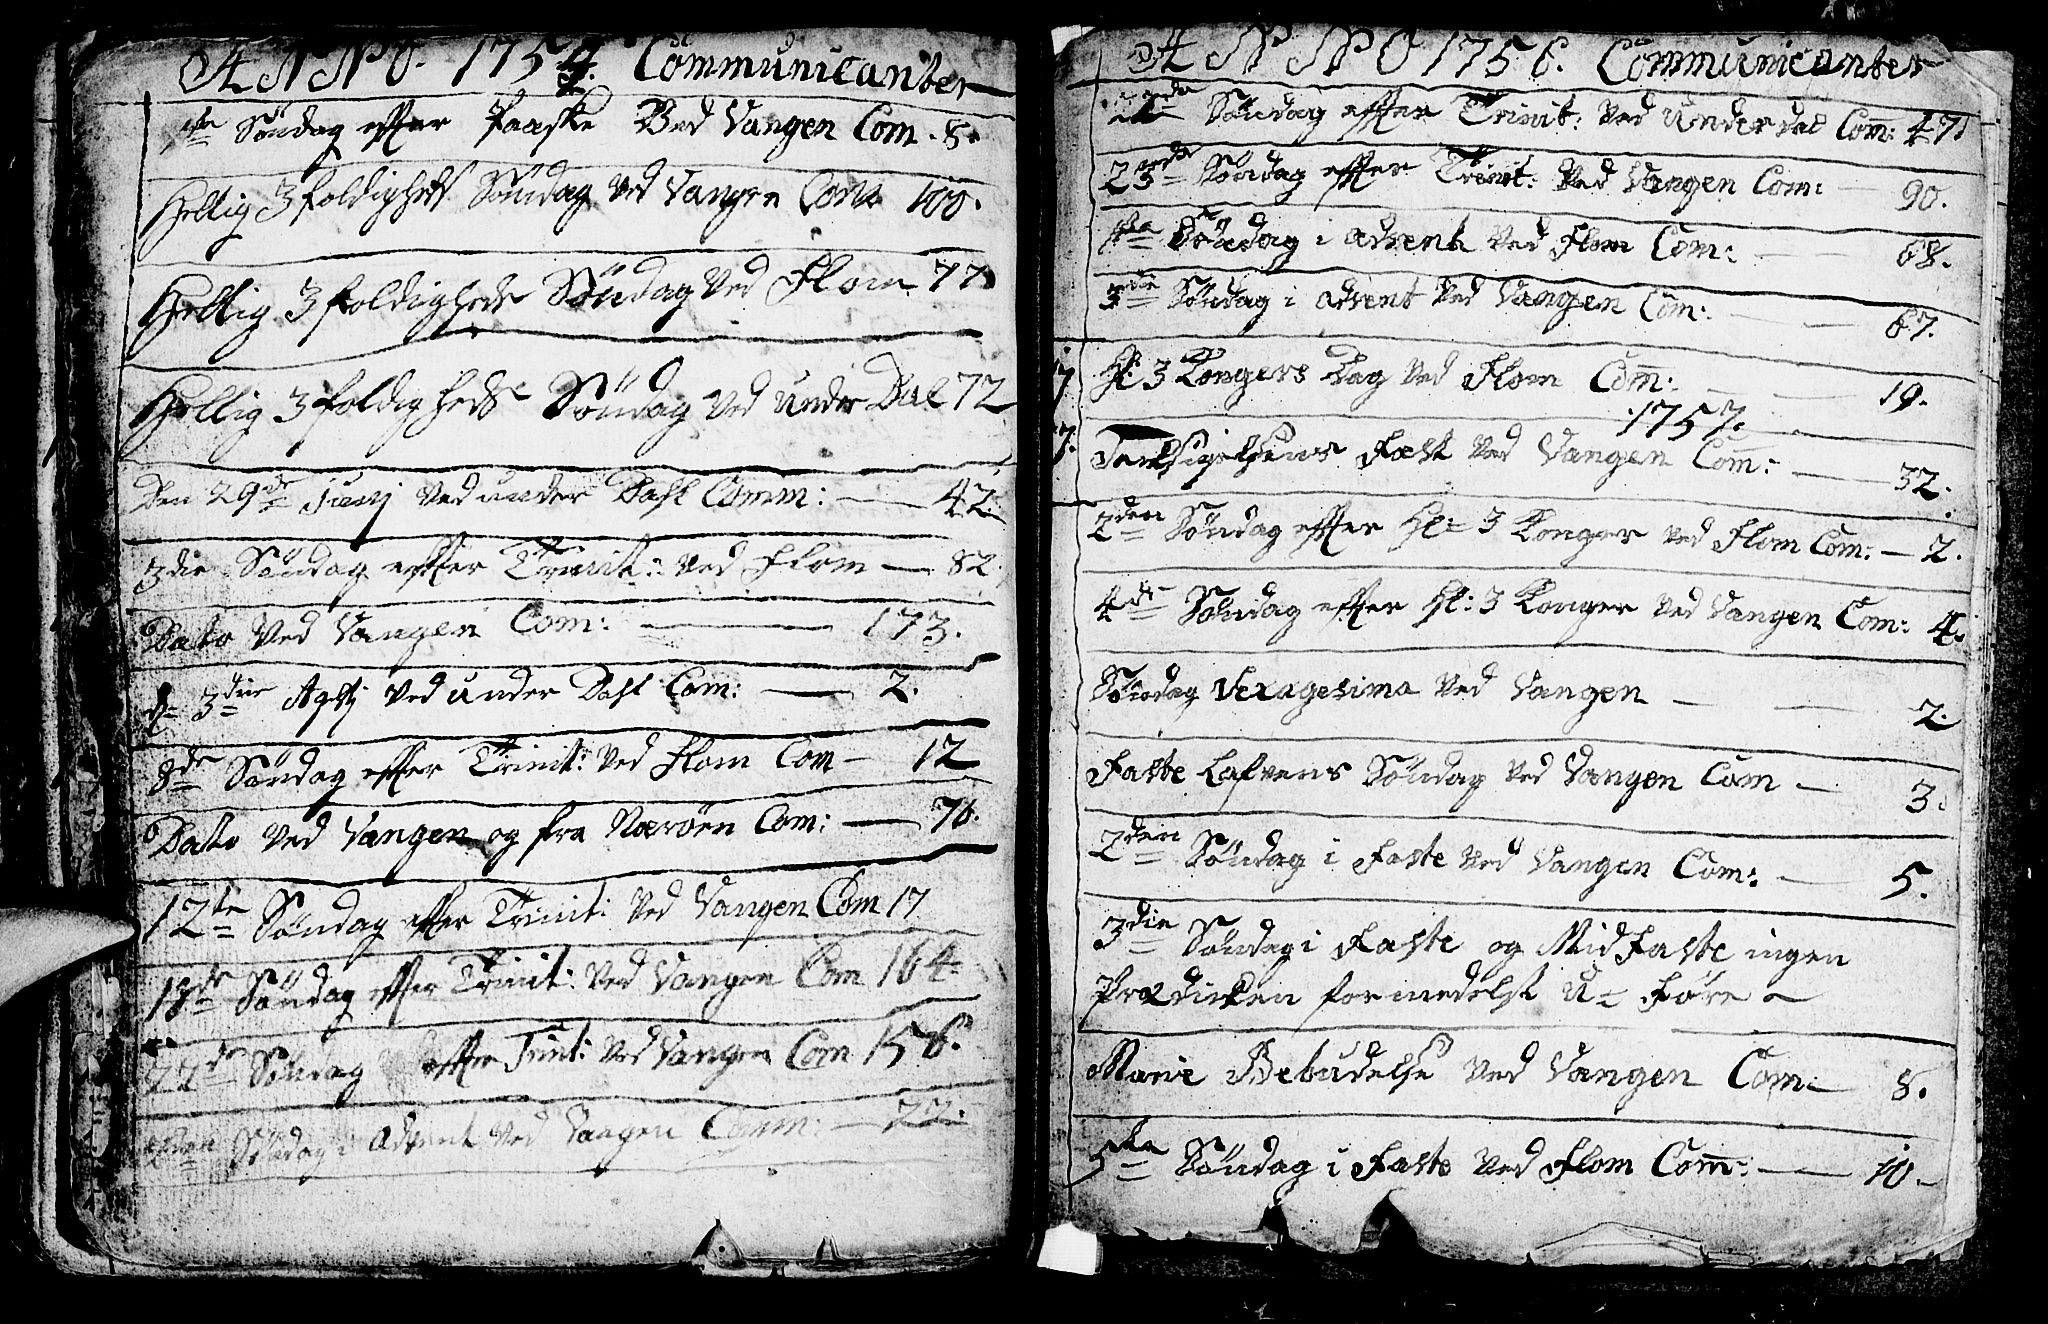 ANNO. 1754. Communicanter
1ste Søndag effter Paaske Ved Vangen Com. 8.
Hellig 3foldigheds Søndag ved Vangen Com 100.
Hellig 3foldigheds Søndag ved Flom 77
Hellig 3foldigheds Søndag ved under Dal 72
Den 29de Junij ved under Dahl Comm: — 42.
3die Søndag effter Trinit: ved Flom — 82.
Dato ved Vangen Com: — 173.
d= 3die Agstj ved under Dahl Com: — 2.
8de Søndag effter Trinit: ved Flom Com — 12
Dato ved Vangen og fra Nærøen Com: — 76.
12te Søndag effter Trinit: ved Vangen Com 17
Søndag effter Trinit: ved Vangen Com 164.
22de Søndag effter Trinit: ved Vangen Com 156.
2den Søndag i Advent ved Vangen Comm: — 22.
ANNO 1756. Communicanter
Søndag effter Trinit: ved Underdal Com: 47
23de Søndag effter Trinit: ved Vangen Com: — 90.
1ste Søndag i advent ved Flom Com: — 68.
3die Søndag i advent ved Vangen Com: — 67.
Hl: 3 Kongers Dag ved Flom Com: — 19.
1757.
Tacksigelsens Fæst ved Vangen Com: — 32.
2den Søndag effter Hl: 3 Konger ved Flom Com: — 2.
4de Søndag effter Hl: 3 Konger ved Vangen Com: 4.
Søndag Sexagesima ved Vangen — 2.
Faste Lafvens Søndag ved Vangen Com — 3.
2den Søndag i Faste ved Vangen Com: — 5.
3die Søndag i Faste og MidFaste ingen
Prædicken formedelst U= Føre —
Mariæ Bebudelse ved Vangen Com: — 8.
5te Søndag i Faste ved Flom Com: — 10.